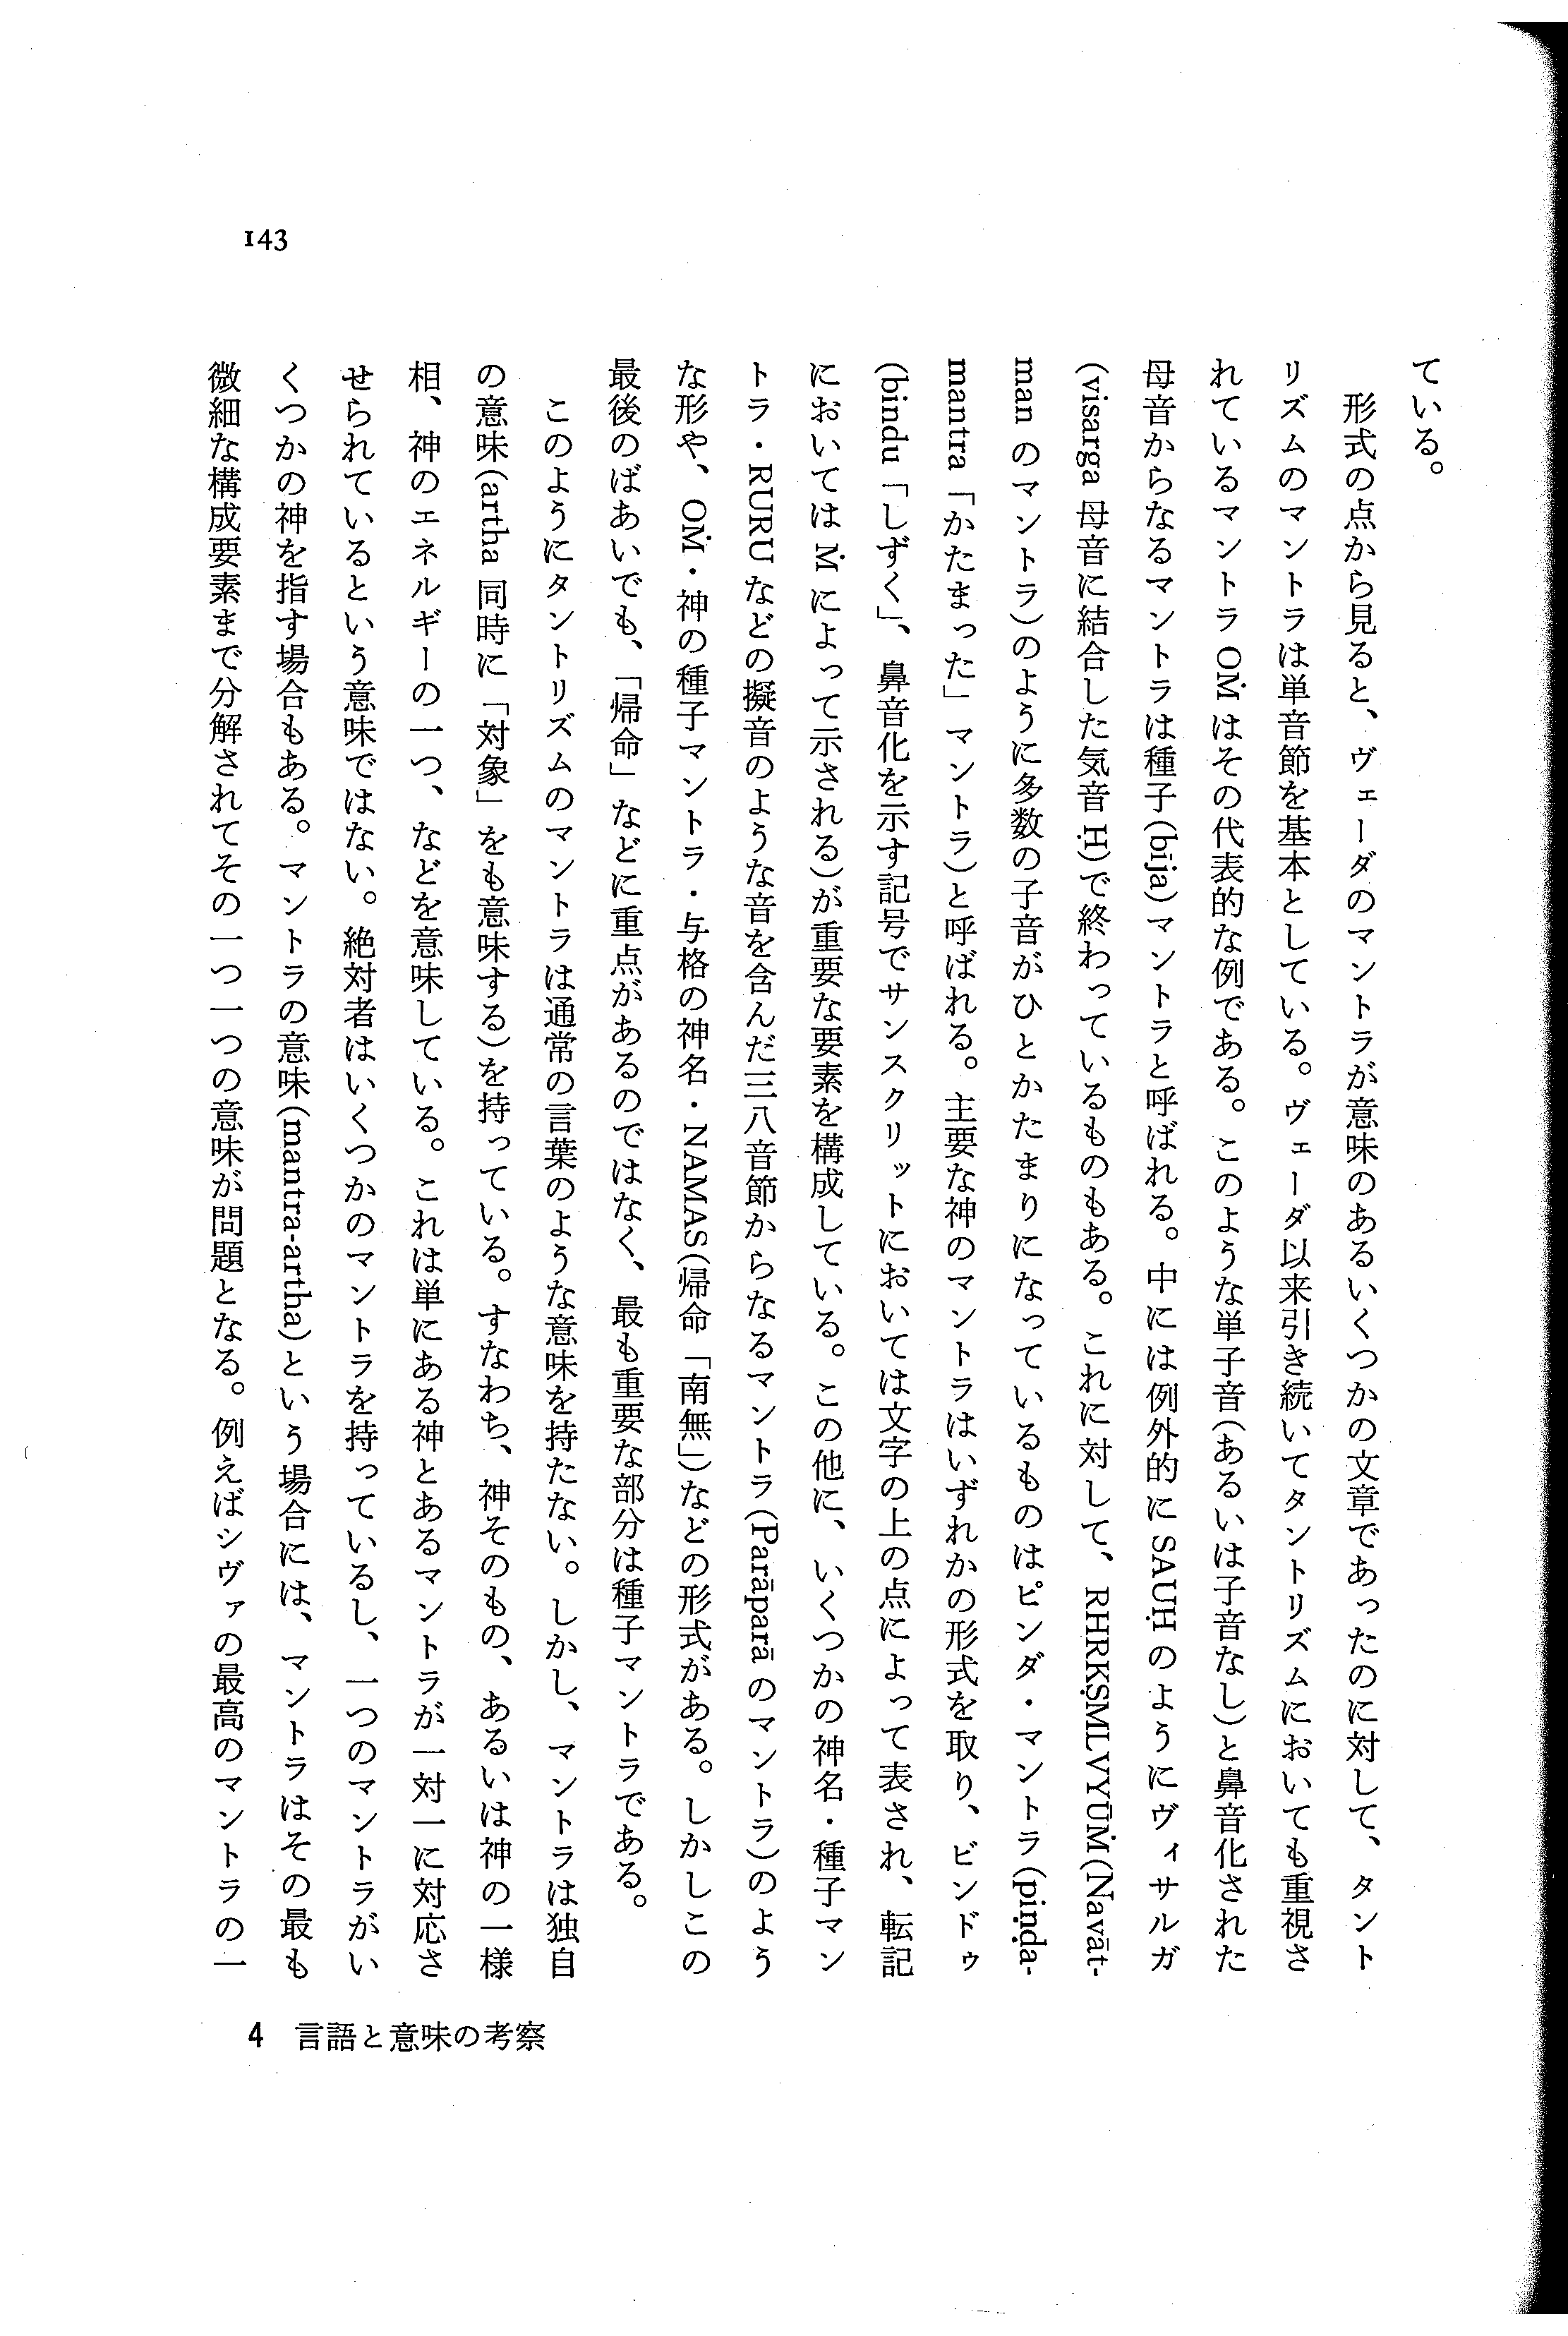 143
ている。
形式の点から見ると、ヴェーダのマントラが意味のあるいくつかの文章であったのに対して、タント
リズムのマントラは単音節を基本としている。ヴェーダ以来引き続いてタントリズムにおいても重視さ
れているマントラ OṀ はその代表的な例である。このような単子音(あるいは子音なし)と鼻音化された
母音からなるマントラは種子(bīja)マントラと呼ばれる。中には例外的に SAUḤ のようにヴィサルガ
(visarga 母音に結合した気音 Ḥ)で終わっているものもある。これに対して、RHRKṢMLVYŪṀ(Navāt-
man のマントラ)のように多数の子音がひとかたまりになっているものはピンダ・マントラ(piṇḍa-
mantra「かたまった」マントラ)と呼ばれる。主要な神のマントラはいずれかの形式を取り、ビンドゥ
(bindu「しずく」、鼻音化を示す記号でサンスクリットにおいては文字の上の点によって表され、転記
においては Ṁ によって示される)が重要な要素を構成している。この他に、いくつかの神名・種子マン
トラ・RURU などの擬音のような音を含んだ三八音節からなるマントラ(Parāparā のマントラ)のよう
な形や、OṀ・神の種子マントラ・与格の神名・NAMAS(帰命「南無」)などの形式がある。しかしこの
最後のばあいでも、「帰命」などに重点があるのではなく、最も重要な部分は種子マントラである。
このようにタントリズムのマントラは通常の言葉のような意味を持たない。しかし、マントラは独自
の意味(artha 同時に「対象」をも意味する)を持っている。すなわち、神そのもの、あるいは神の一様
相、神のエネルギーの一つ、などを意味している。これは単にある神とあるマントラが一対一に対応さ
せられているという意味ではない。絶対者はいくつかのマントラを持っているし、一つのマントラがい
くつかの神を指す場合もある。マントラの意味(mantra-artha)という場合には、マントラはその最も
微細な構成要素まで分解されてその一つ一つの意味が問題となる。例えばシヴァの最高のマントラの一
4 言語と意味の考察